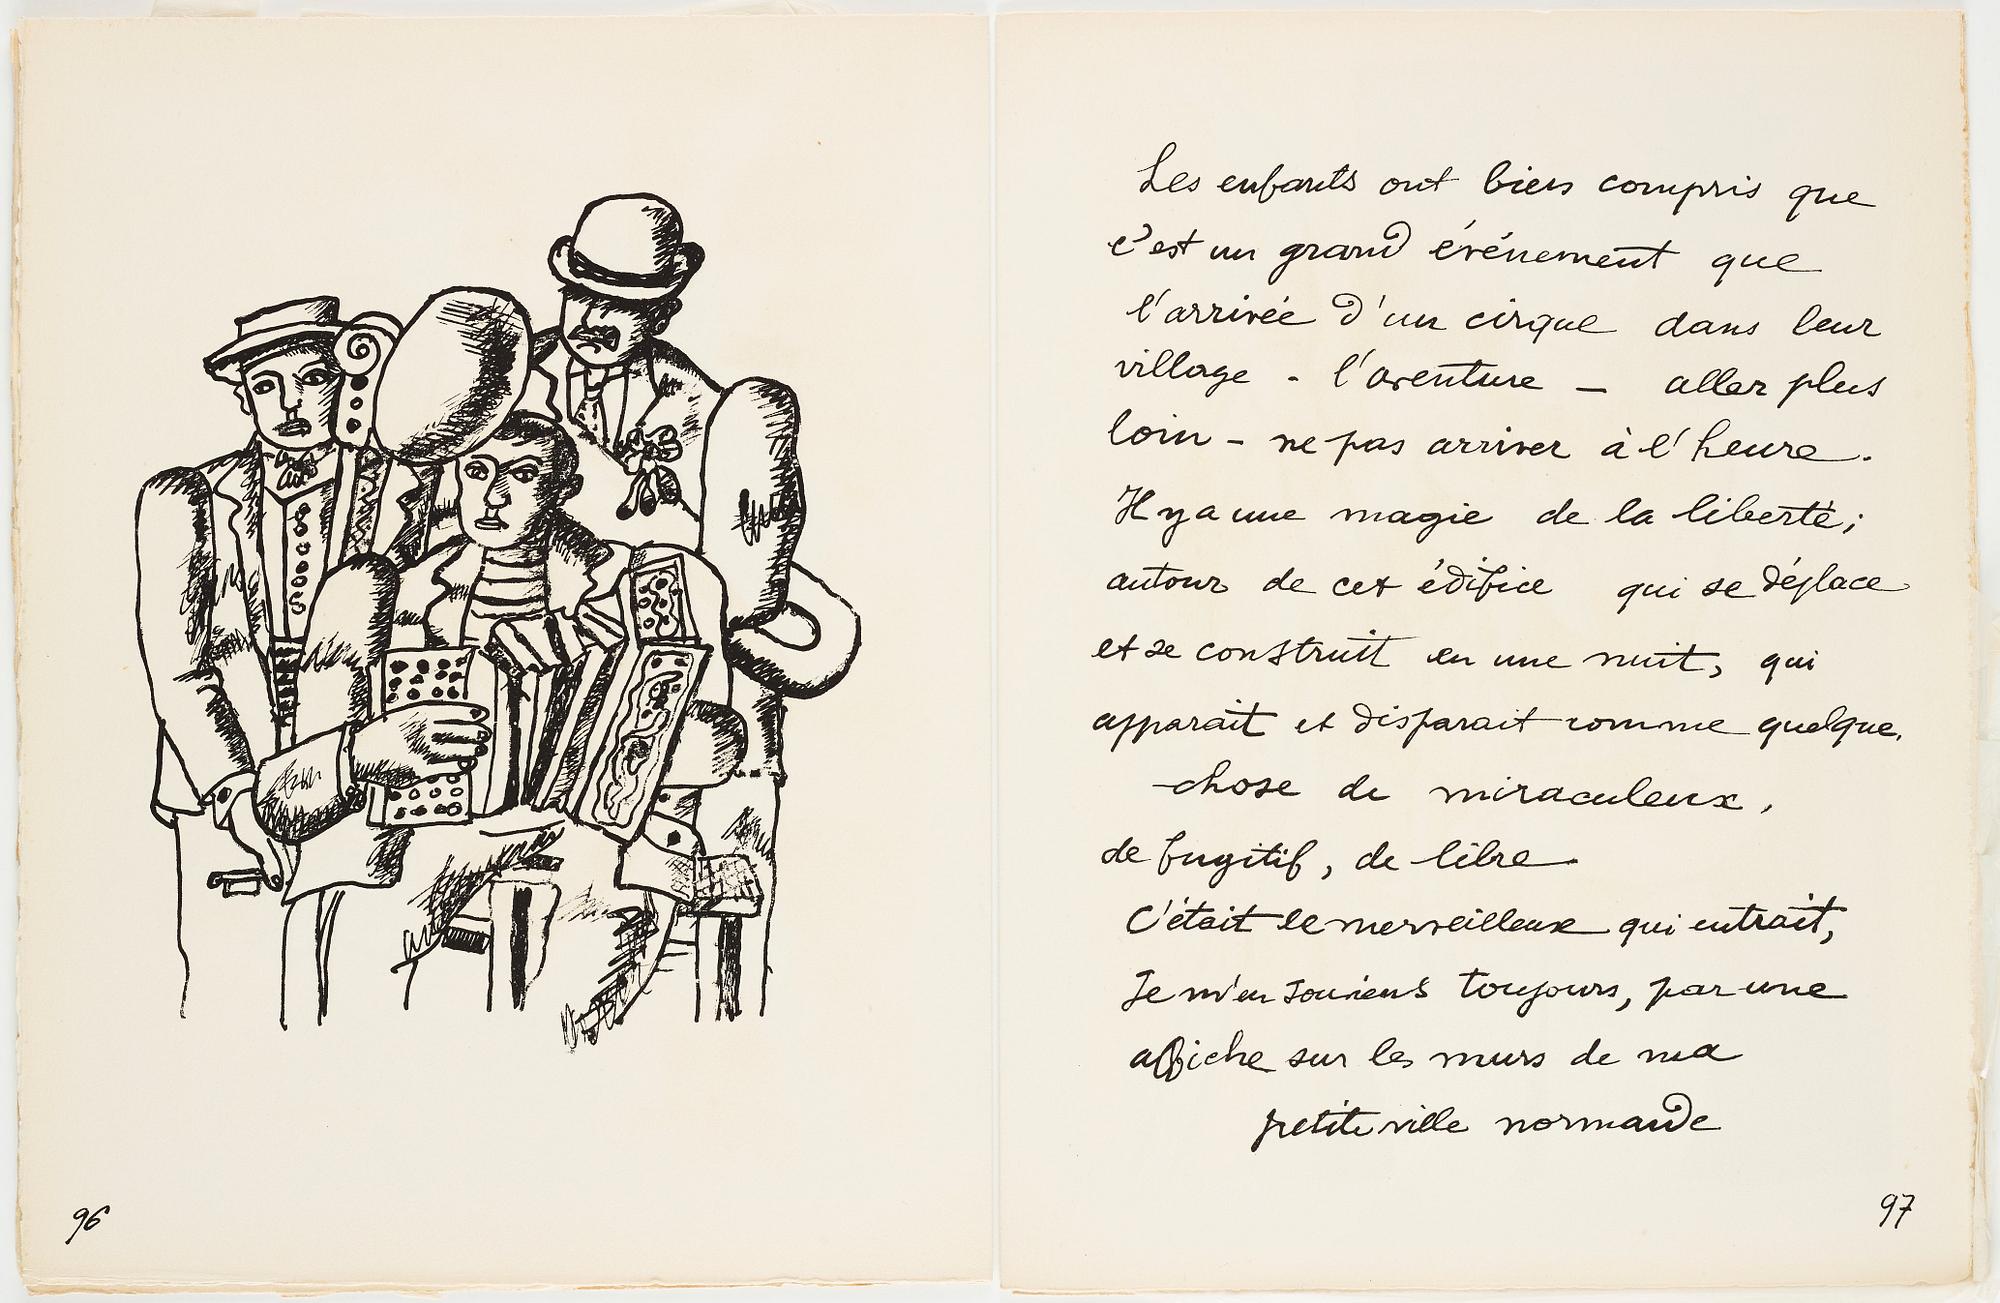 Les enfants ont bien compris que
c'est un grand événement que
l'arrivée d'un cirque dans leur
village - l'aventure - aller plus
loin - ne pas arriver à l'heure.
Il y a une magie de la liberté;
autour de cet édifice qui se déplace
et se construit en une nuit, qui
apparait et disparait comme quelque
-chose de miraculeux,
de fugitif, de libre.
C'était le merveilleux qui entrait,
Je m'en souviens toujours, par une
affiche sur les murs de ma
petite ville normande
96
97